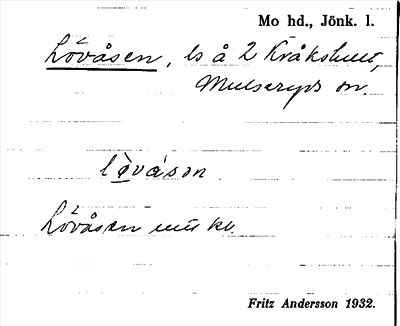 Mo hd., Jönk. l.
Lövåsen, ls å 2 Kråkshult,
Mulseryds sn.
lò̱vàsən
Lövåsen kl.
Fritz Andersson 1932.